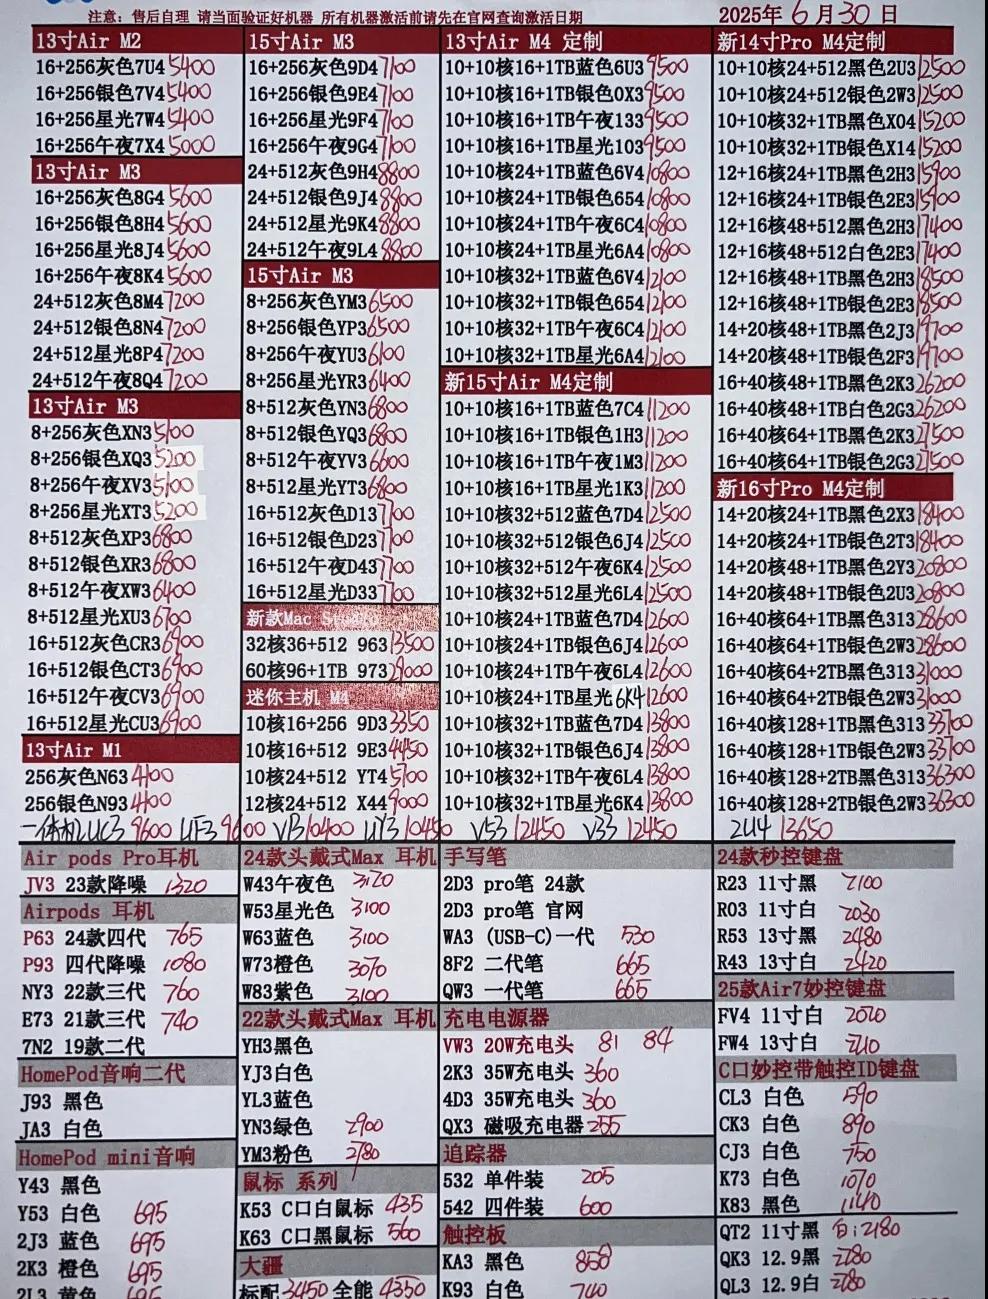 注意：售后自理 请当面验证好机器 所有机器激活前请先在官网查询激活日期
2025年6月30日
13寸Air M2
16+256灰色7U4 5400
16+256银色7V4 5400
16+256星光7W4 5400
16+256午夜7X4 5000
13寸Air M3
16+256灰色8G4 5600
16+256银色8H4 5600
16+256星光8J4 5600
16+256午夜8K4 5600
24+512灰色8M4 7200
24+512银色8N4 7200
24+512星光8P4 7200
24+512午夜8Q4 7200
13寸Air M3
8+256灰色XN3 5100
8+256银色XQ3 5200
8+256午夜XV3 5100
8+256星光XT3 5200
8+512灰色XP3 6800
8+512银色XR3 6800
8+512午夜XW3 6400
8+512星光XU3 6700
16+512灰色CR3 6900
16+512银色CT3 6900
16+512午夜CV3 6900
16+512星光CU3 6900
13寸Air M1
256灰色N63 4100
256银色N93 4100
15寸Air M3
16+256灰色9D4 7100
16+256银色9E4 7100
16+256星光9F4 7100
16+256午夜9G4 7100
24+512灰色9H4 8800
24+512银色9J4 8800
24+512星光9K4 8800
24+512午夜9L4 8800
15寸Air M3
8+256灰色YM3 6500
8+256银色YP3 6500
8+256午夜YU3 6100
8+256星光YR3 6400
8+512灰色YN3 6800
8+512银色YQ3 6800
8+512午夜YV3 6600
8+512星光YT3 6800
16+512灰色D13 7700
16+512银色D23 7700
16+512午夜D43 7700
16+512星光D33 7700
新款Mac Studio
32核36+512 963 13500
60核96+1TB 973 29000
迷你主机 M4
10核16+256 9D3 3350
10核16+512 9E3 4450
10核24+512 YT4 5700
12核24+512 X44 9000
13寸Air M4 定制
10+10核16+1TB蓝色6U3 9500
10+10核16+1TB银色0X3 9500
10+10核16+1TB午夜133 9500
10+10核16+1TB星光103 9500
10+10核24+1TB蓝色6V4 10800
10+10核24+1TB银色654 10800
10+10核24+1TB午夜6C4 10800
10+10核24+1TB星光6A4 10800
10+10核32+1TB蓝色6V4 12100
10+10核32+1TB银色654 12100
10+10核32+1TB午夜6C4 12100
10+10核32+1TB星光6A4 12100
新15寸Air M4定制
10+10核16+1TB蓝色7C4 11200
10+10核16+1TB银色1H3 11200
10+10核16+1TB午夜1M3 11200
10+10核16+1TB星光1K3 11200
10+10核32+512蓝色7D4 12500
10+10核32+512银色6J4 12500
10+10核32+512午夜6K4 12500
10+10核32+512星光6L4 12500
10+10核24+1TB蓝色7D4 12600
10+10核24+1TB银色6J4 12600
10+10核24+1TB午夜6L4 12600
10+10核24+1TB星光6K4 12600
10+10核32+1TB蓝色7D4 13800
10+10核32+1TB银色6J4 13800
10+10核32+1TB午夜6L4 13800
10+10核32+1TB星光6K4 13800
新14寸Pro M4定制
10+10核24+512黑色2U3 12500
10+10核24+512银色2W3 12500
10+10核32+1TB黑色X04 15200
10+10核32+1TB银色X14 15200
12+16核24+1TB黑色2H3 15900
12+16核24+1TB银色2E3 15900
12+16核48+512黑色2H3 17400
12+16核48+512白色2E3 17400
12+16核48+1TB黑色2H3 18500
12+16核48+1TB银色2E3 18500
14+20核48+1TB黑色2J3 19700
14+20核48+1TB银色2F3 19700
16+40核48+1TB黑色2K3 26200
16+40核48+1TB白色2G3 26200
16+40核64+1TB黑色2K3 27500
16+40核64+1TB银色2G3 27500
新16寸Pro M4定制
14+20核24+1TB黑色2X3 18400
14+20核24+1TB银色2T3 18400
14+20核48+1TB黑色2Y3 20800
14+20核48+1TB银色2U3 20800
16+40核64+1TB黑色313 28600
16+40核64+1TB银色2W3 28600
16+40核64+2TB黑色313 31000
16+40核64+2TB银色2W3 31000
16+40核128+1TB黑色313 33700
16+40核128+1TB银色2W3 33700
16+40核128+2TB黑色313 36300
16+40核128+2TB银色2W3 36300
一体机2UC3 9600 UF3 9600 VB3 10400 UY3 10450 V53 12450 V33 12450 2U4 13650
Air pods Pro耳机
JV3 23款降噪 1320
Airpods 耳机
P63 24款四代 765
P93 四代降噪 1080
NY3 22款三代 760
E73 21款三代 740
7N2 19款二代
HomePod音响二代
J93 黑色
JA3 白色
HomePod mini音响
Y43 黑色
Y53 白色 695
2J3 蓝色 695
2K3 橙色 695
2L3 黄色 695
24款头戴式Max 耳机
W43午夜色 3120
W53星光色 3100
W63蓝色 3100
W73橙色 3070
W83紫色 3100
22款头戴式Max 耳机
YH3黑色
YJ3白色
YL3蓝色
YN3绿色 2900
YM3粉色 2780
鼠标 系列
K53 C口白鼠标 435
K63 C口黑鼠标 560
大疆
标配 3450 全能 4350
手写笔
2D3 pro笔 24款
2D3 pro笔 官网
WA3 (USB-C)一代 530
8F2 二代笔 665
QW3 一代笔 665
充电电源器
VW3 20W充电头 81 84
2K3 35W充电头 360
4D3 35W充电头 360
QX3 磁吸充电器 255
追踪器
532 单件装 205
542 四件装 600
触控板
KA3 黑色 850
K93 白色 740
24款秒控键盘
R23 11寸黑 2100
R03 11寸白 2030
R53 13寸黑 2480
R43 13寸白 2420
25款Air7妙控键盘
FV4 11寸白 2020
FW4 13寸白
C口妙控带触控ID键盘
CL3 白色 590
CK3 白色 890
CJ3 白色 750
K73 白色 1070
K83 黑色 1140
QT2 11寸黑 白:2180
QK3 12.9黑 2280
QL3 12.9白 2280